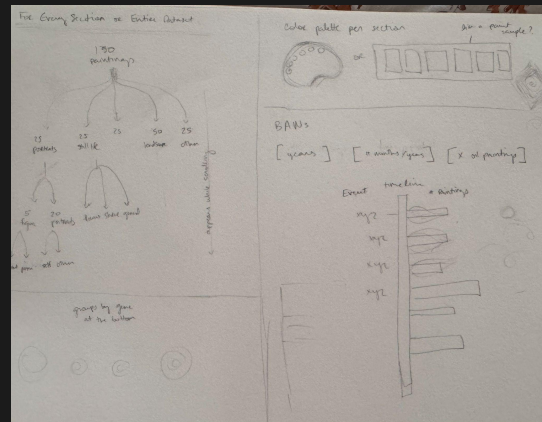 For Every Section or Entire Dataset
150
paintings
25
portraits
25
still life
25
50
landscape
25
other
5
figure
20
portraits
self
other
appears while scrolling
groups by genre
at the bottom
Color palette per section
like a paint
sample?
or
BANs
[years]
[# months/years]
[X of paintings]
Event
timeline
# Paintings
xyz
xyz
xyz
xyz